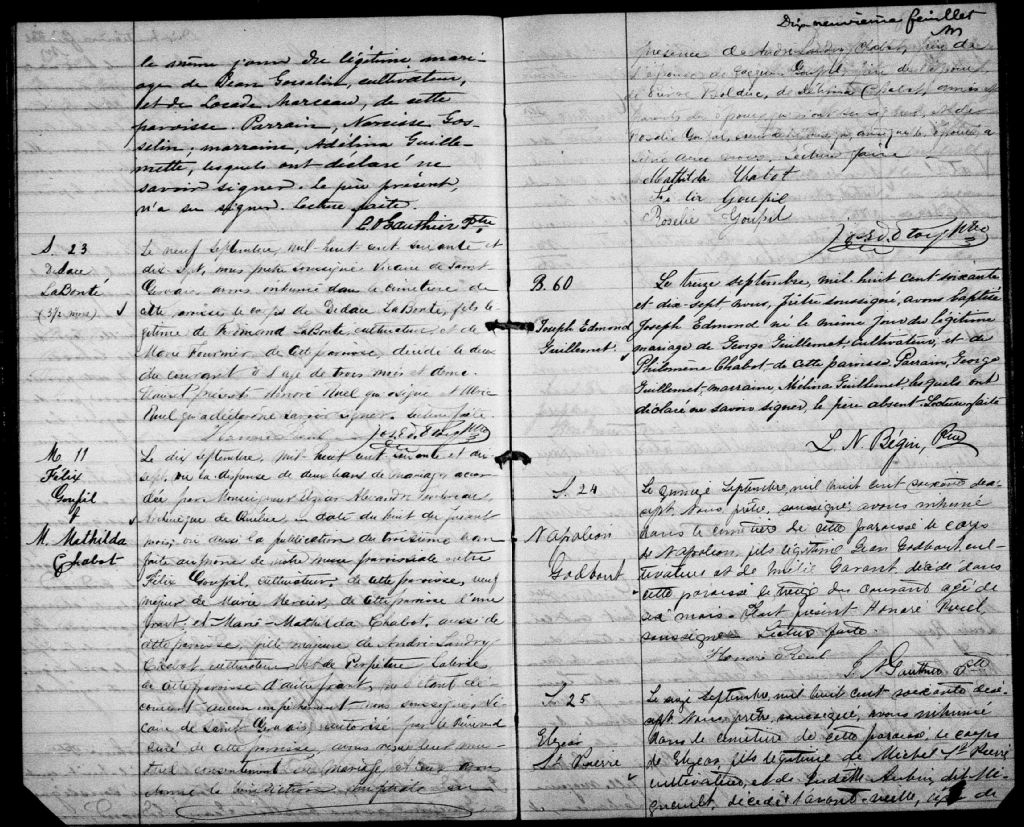 le même jour du légitime maria-
age de Jean Gosselin, cultivateur,
et de Locade Marseau, de cette
paroisse. Parrain, Narcisse Gos-
selin; marraine, Adélina Guille-
mette, lesquels ont déclaré ne
savoir signer. Le père présent,
n'a su signer. Lecture faite.
L O Gauthier Ptre
S. 23
Didace
LaBonté
(3 1/2 mois)
Le neuf septembre, mil huit cent soixante et
dix sept, nous prêtre soussigné Vicaire de Saint
Gervais avons inhumé dans le cimetière de
cette paroisse le corps de Didace LaBonté, fils lé
gitime de LaBonté, cultivateur et de
Marie Fournier, de cette paroisse, décédé le deux
du courant à l'âge de trois mois et demi.
Etaient présents Honoré Ruel qui a signé et
Ruel qui a déclaré ne savoir signer. Lecture faite
M 11
Félix
Goupil
&
M. Mathilda
Chabot
Le dix septembre, mil huit cent soixante et dix
sept, vu la dispense de deux bans de mariage accor
dée par Monseigneur Elzéar Alexandre Taschereau,
Archevêque de Québec, en date du huit du présent
mois; vu aussi la publication du troisième ban
faite au prône de notre messe paroissiale entre
Félix Goupil, cultivateur, de cette paroisse, veuf
majeur de Marie Mercier, de cette paroisse d'une
part; et Marie Mathilda Chabot, aussi de
cette paroisse, fille majeure de André Landry
Chabot, cultivateur et de Perpétue
de cette paroisse d'autre part, ne s'étant dé-
couvert aucun empêchement nous soussigné, Vi
caire de Saint Gervais, autorisé par le Révérend
curé de cette paroisse, avons reçu leur mu
tuel consentement de mariage et leur avons
donné la bénédiction nuptiale en
Dix neuvième feuillet
présence de André Landry Chabot, père de
l'épouse, de Goupil, frère de l'époux,
de Pierre Bolduc, de Chabot, amis
Lecture faite
Mathilda Chabot
Félix Goupil
Rosélie Goupil
B. 60
Joseph Edmond
Guillemet
Le treize septembre, mil huit cent soixante
et dix-sept nous, prêtre soussigné, avons baptisé
Joseph Edmond né le même jour du légitime
mariage de George Guillemet cultivateur, et de
Philomène Chabot, de cette paroisse. Parrain, George
Guillemet, marraine, Mélina Guillemet, lesquels ont
déclaré ne savoir signer, le père absent. Lecture faite
L N Bégin, Ptre
S. 24
Napoléon
Godbout
Le quinze Septembre, mil huit cent soixante dix
sept Nous, prêtre, soussigné, avons inhumé
dans le cimetière de cette paroisse le corps
de Napoléon, fils légitime Jean Godbout, cul
tivateur et de Emélie Garant, décédé dans
cette paroisse le treize du courant âgé de
six mois. Etait présent Honoré Ruel,
soussigné. Lecture faite.
Honoré Ruel
L O Gauthier Ptre
S. 25
Elzéar
St Pierre
Le seize Septembre, mil huit cent soixante dix
sept Nous, prêtre, soussigné, avons inhumé
dans le cimetière de cette paroisse, le corps
de Elzéar, fils légitime de Michel St Pierre
cultivateur, et de Audette Aubin dit Mi
gneault, décédé l'avant-veille, âgé de